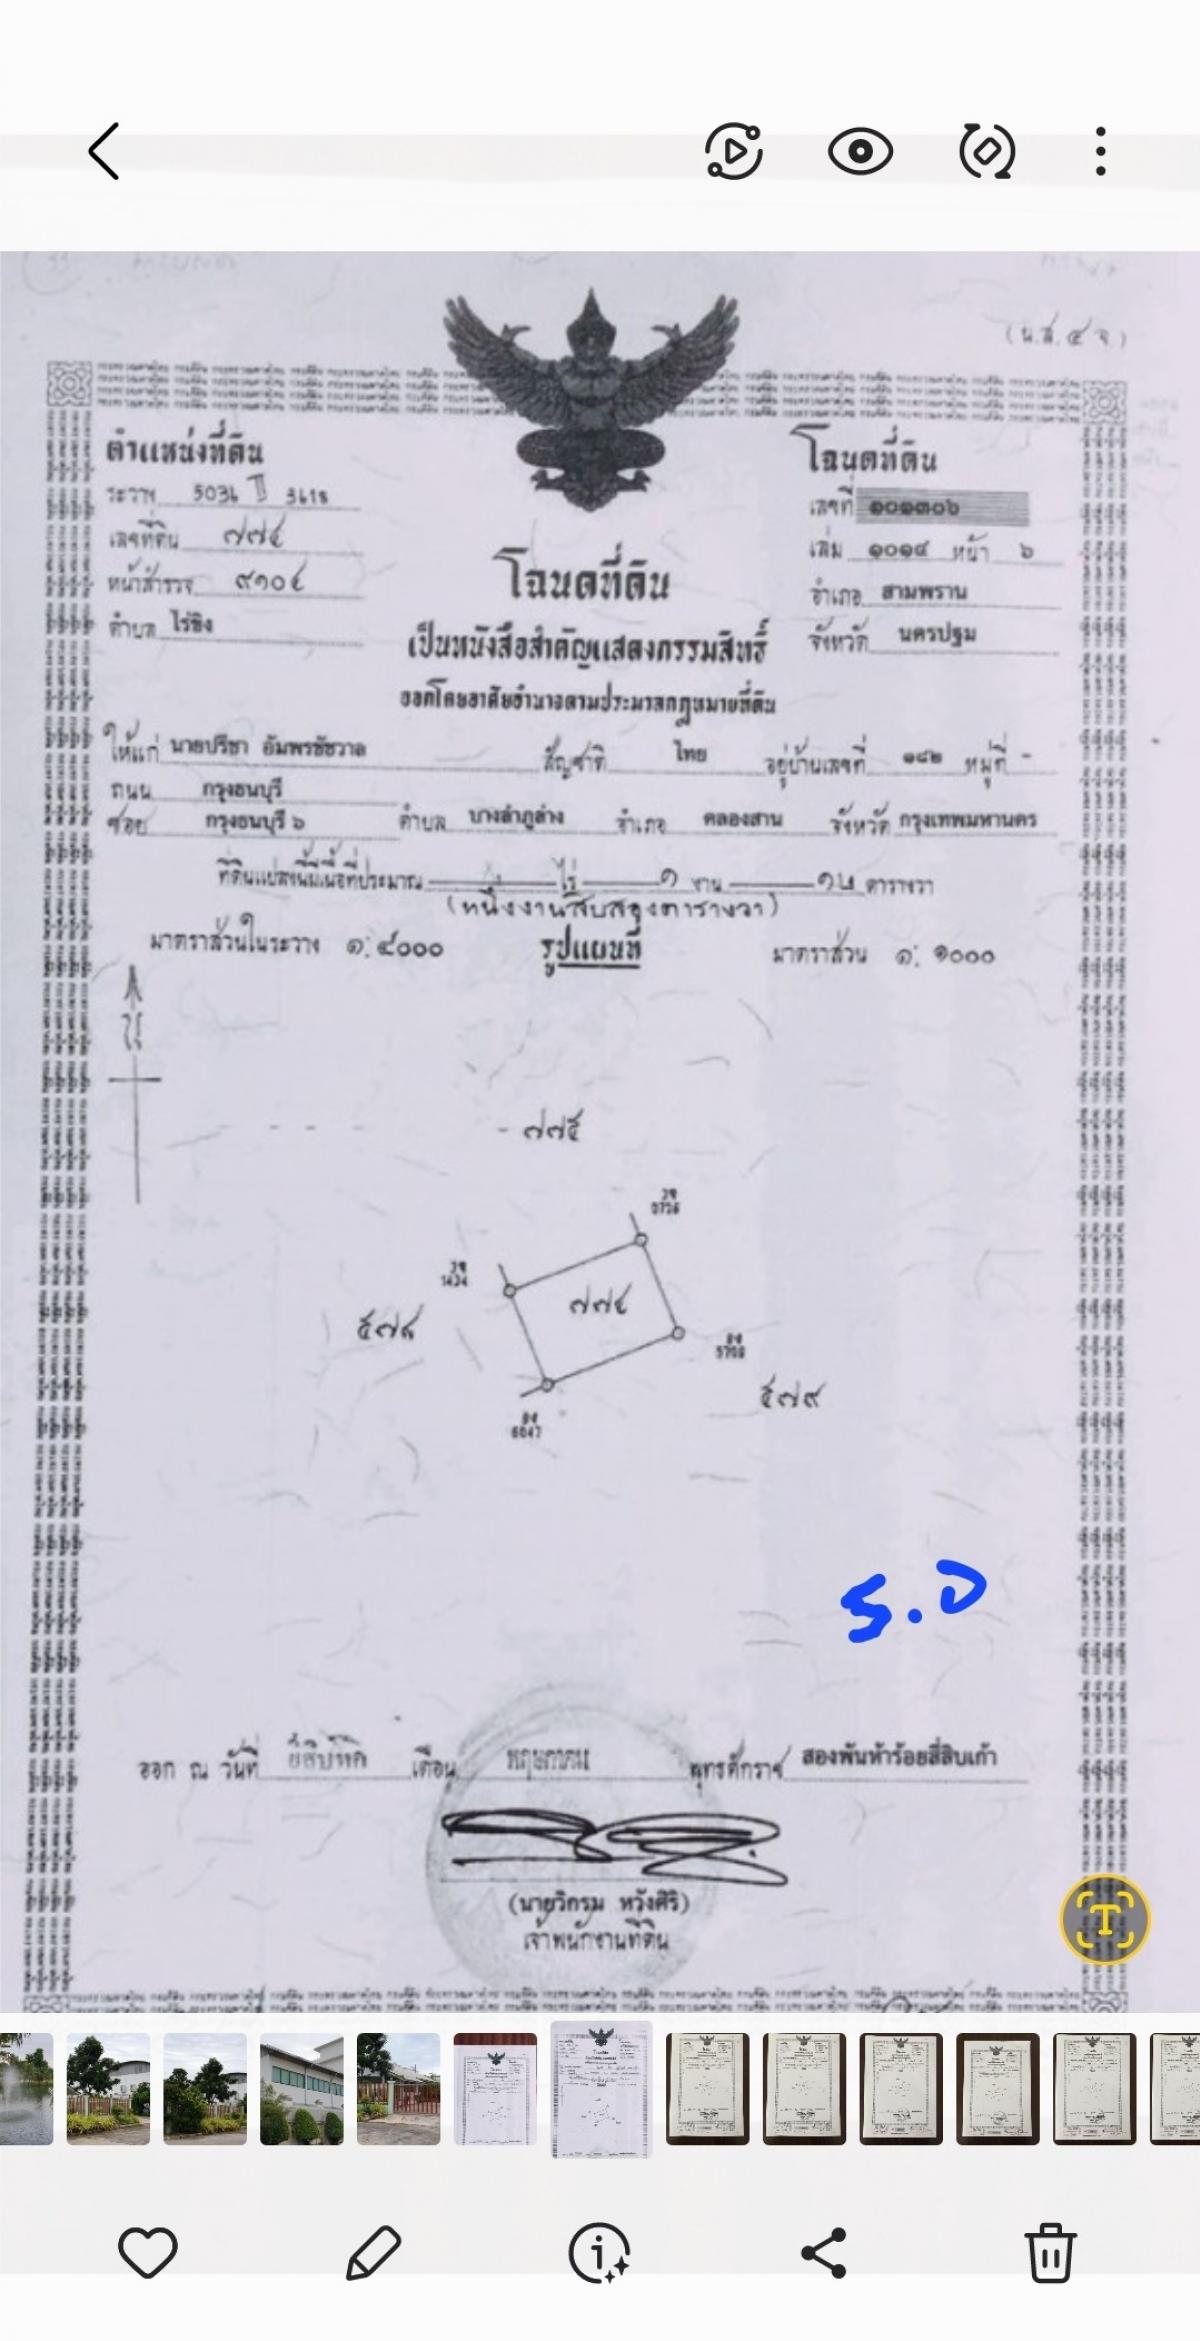 (น.ส. ๔ จ)
ตำแหน่งที่ดิน
ระวาง 5036 II 3618
เลขที่ดิน ๗๗๔
หน้าสำรวจ ๙๑๐๔
ตำบล ไร่ขิง
โฉนดที่ดิน
เลขที่ ๑๐๑๓๐๖
เล่ม ๑๐๑๔ หน้า ๖
อำเภอ สามพราน
จังหวัด นครปฐม
โฉนดที่ดิน
เป็นหนังสือสำคัญแสดงกรรมสิทธิ์
ออกโดยอาศัยอำนาจตามประมวลกฎหมายที่ดิน
ให้แก่ นายปรีชา อัมพรชัชวาล สัญชาติ ไทย อยู่บ้านเลขที่ ๑๘๒ หมู่ที่ -
ถนน กรุงธนบุรี
ซอย กรุงธนบุรี ๖ ตำบล บางลำภูล่าง อำเภอ คลองสาน จังหวัด กรุงเทพมหานคร
ที่ดินแปลงนี้มีเนื้อที่ประมาณ ไร่ ๑ งาน ๑๒ ตารางวา
(หนึ่งงานสิบสองตารางวา)
มาตราส่วนในระวาง ๑:๔๐๐๐ รูปแผนที่ มาตราส่วน ๑: ๑๐๐๐
น
๗๗๕
๗๗๔
๕๗๘
๕๗๙
S.D
ออก ณ วันที่ ยี่สิบหก เดือน พฤษภาคม พุทธศักราช สองพันห้าร้อยสี่สิบเก้า
(นายวิกรม หวังศิริ)
เจ้าพนักงานที่ดิน
T